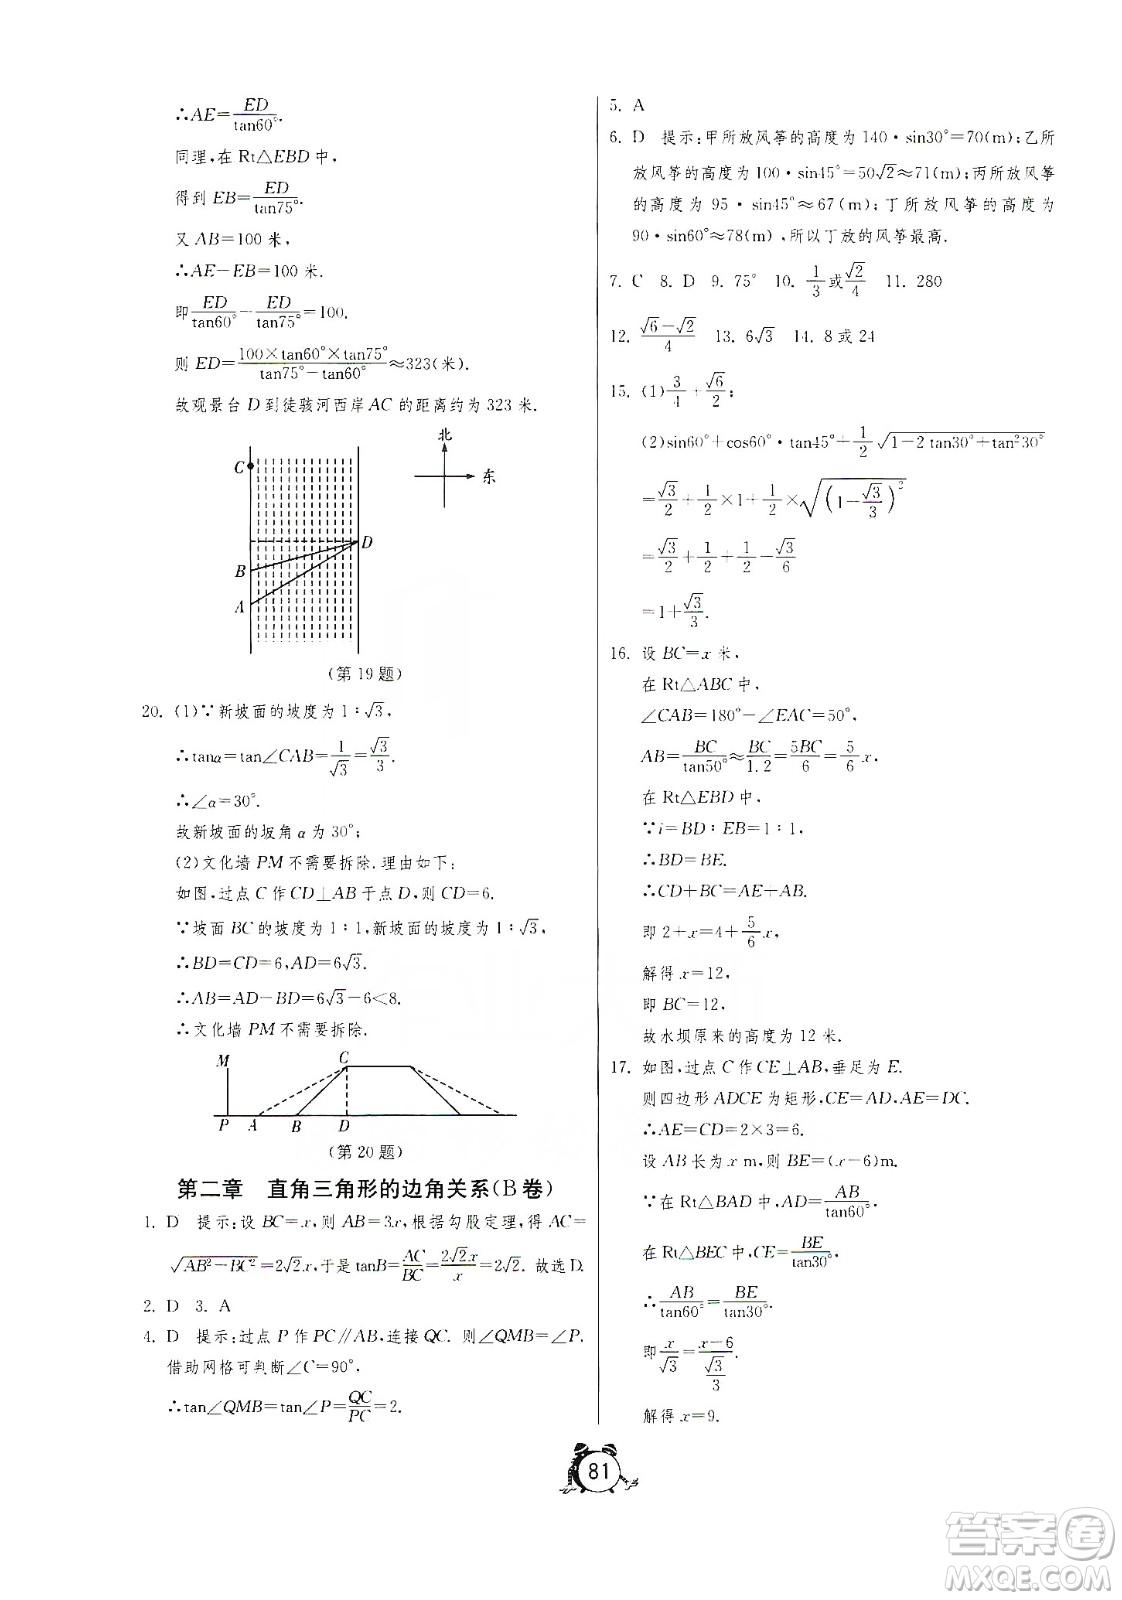 ∴AE=ED/tan60°.
同理,在 Rt△EBD 中,
得到 EB=ED/tan75°.
又 AB=100 米,
∴AE−EB=100 米.
即 ED/tan60°−ED/tan75°=100.
则 ED=100×tan60°×tan75°/tan75°−tan60°≈323(米).
故观景台 D 到徒骇河西岸 AC 的距离约为 323 米.
北
C
东
D
B
A
(第 19 题)
20. (1)∵新坡面的坡度为 1∶√3,
∴tanα=tan∠CAB=1/√3=√3/3.
∴∠α=30°.
故新坡面的坡角 α 为 30°;
(2)文化墙 PM 不需要拆除.理由如下:
如图,过点 C 作 CD⊥AB 于点 D,则 CD=6.
∵坡面 BC 的坡度为 1∶1,新坡面的坡度为 1∶√3,
∴BD=CD=6,AD=6√3.
∴AB=AD−BD=6√3−6<8.
∴文化墙 PM 不需要拆除.
M C
P A B D
(第 20 题)
第二章 直角三角形的边角关系(B 卷)
1. D 提示:设 BC=x,则 AB=3x,根据勾股定理,得 AC=
√(AB²−BC²)=2√2x,于是 tanB=AC/BC=2√2x/x=2√2. 故选 D.
2. D 3. A
4. D 提示:过点 P 作 PC∥AB,连接 QC. 则∠QMB=∠P.
借助网格可判断∠C=90°,
∴tan∠QMB=tan∠P=QC/PC=2.
5. A
6. D 提示:甲所放风筝的高度为 140·sin30°=70(m);乙所
放风筝的高度为 100·sin45°=50√2≈71(m);丙所放风筝
的高度为 95·sin45°≈67(m);丁所放风筝的高度为
90·sin60°≈78(m),所以丁放的风筝最高.
7. C 8. D 9. 75° 10. 1/3或√2/4 11. 280
12. (√6−√2)/4 13. 6√3 14. 8 或 24
15. (1)3/4+√6/2;
(2)sin60°+cos60°·tan45°+1/2√(1−2tan30°+tan²30°)
=√3/2+1/2×1+1/2×√((1−√3/3)²)
=√3/2+1/2+1/2−√3/6
=1+√3/3.
16. 设 BC=x 米,
在 Rt△ABC 中,
∠CAB=180°−∠EAC=50°,
AB=BC/tan50°≈BC/1.2=5BC/6=5/6x.
在 Rt△EBD 中,
∵i=BD∶EB=1∶1,
∴BD=BE.
∴CD+BC=AE+AB.
即 2+x=4+5/6x,
解得 x=12,
即 BC=12,
故水坝原来的高度为 12 米.
17. 如图,过点 C 作 CE⊥AB,垂足为 E.
则四边形 ADCE 为矩形,CE=AD,AE=DC.
∴AE=CD=2×3=6.
设 AB 长为 x m,则 BE=(x−6)m.
∵在 Rt△BAD 中,AD=AB/tan60°,
在 Rt△BEC 中,CE=BE/tan30°,
∴AB/tan60°=BE/tan30°.
即x/√3=(x−6)/(√3/3).
解得 x=9.
81
答案卷
MXQE.COM